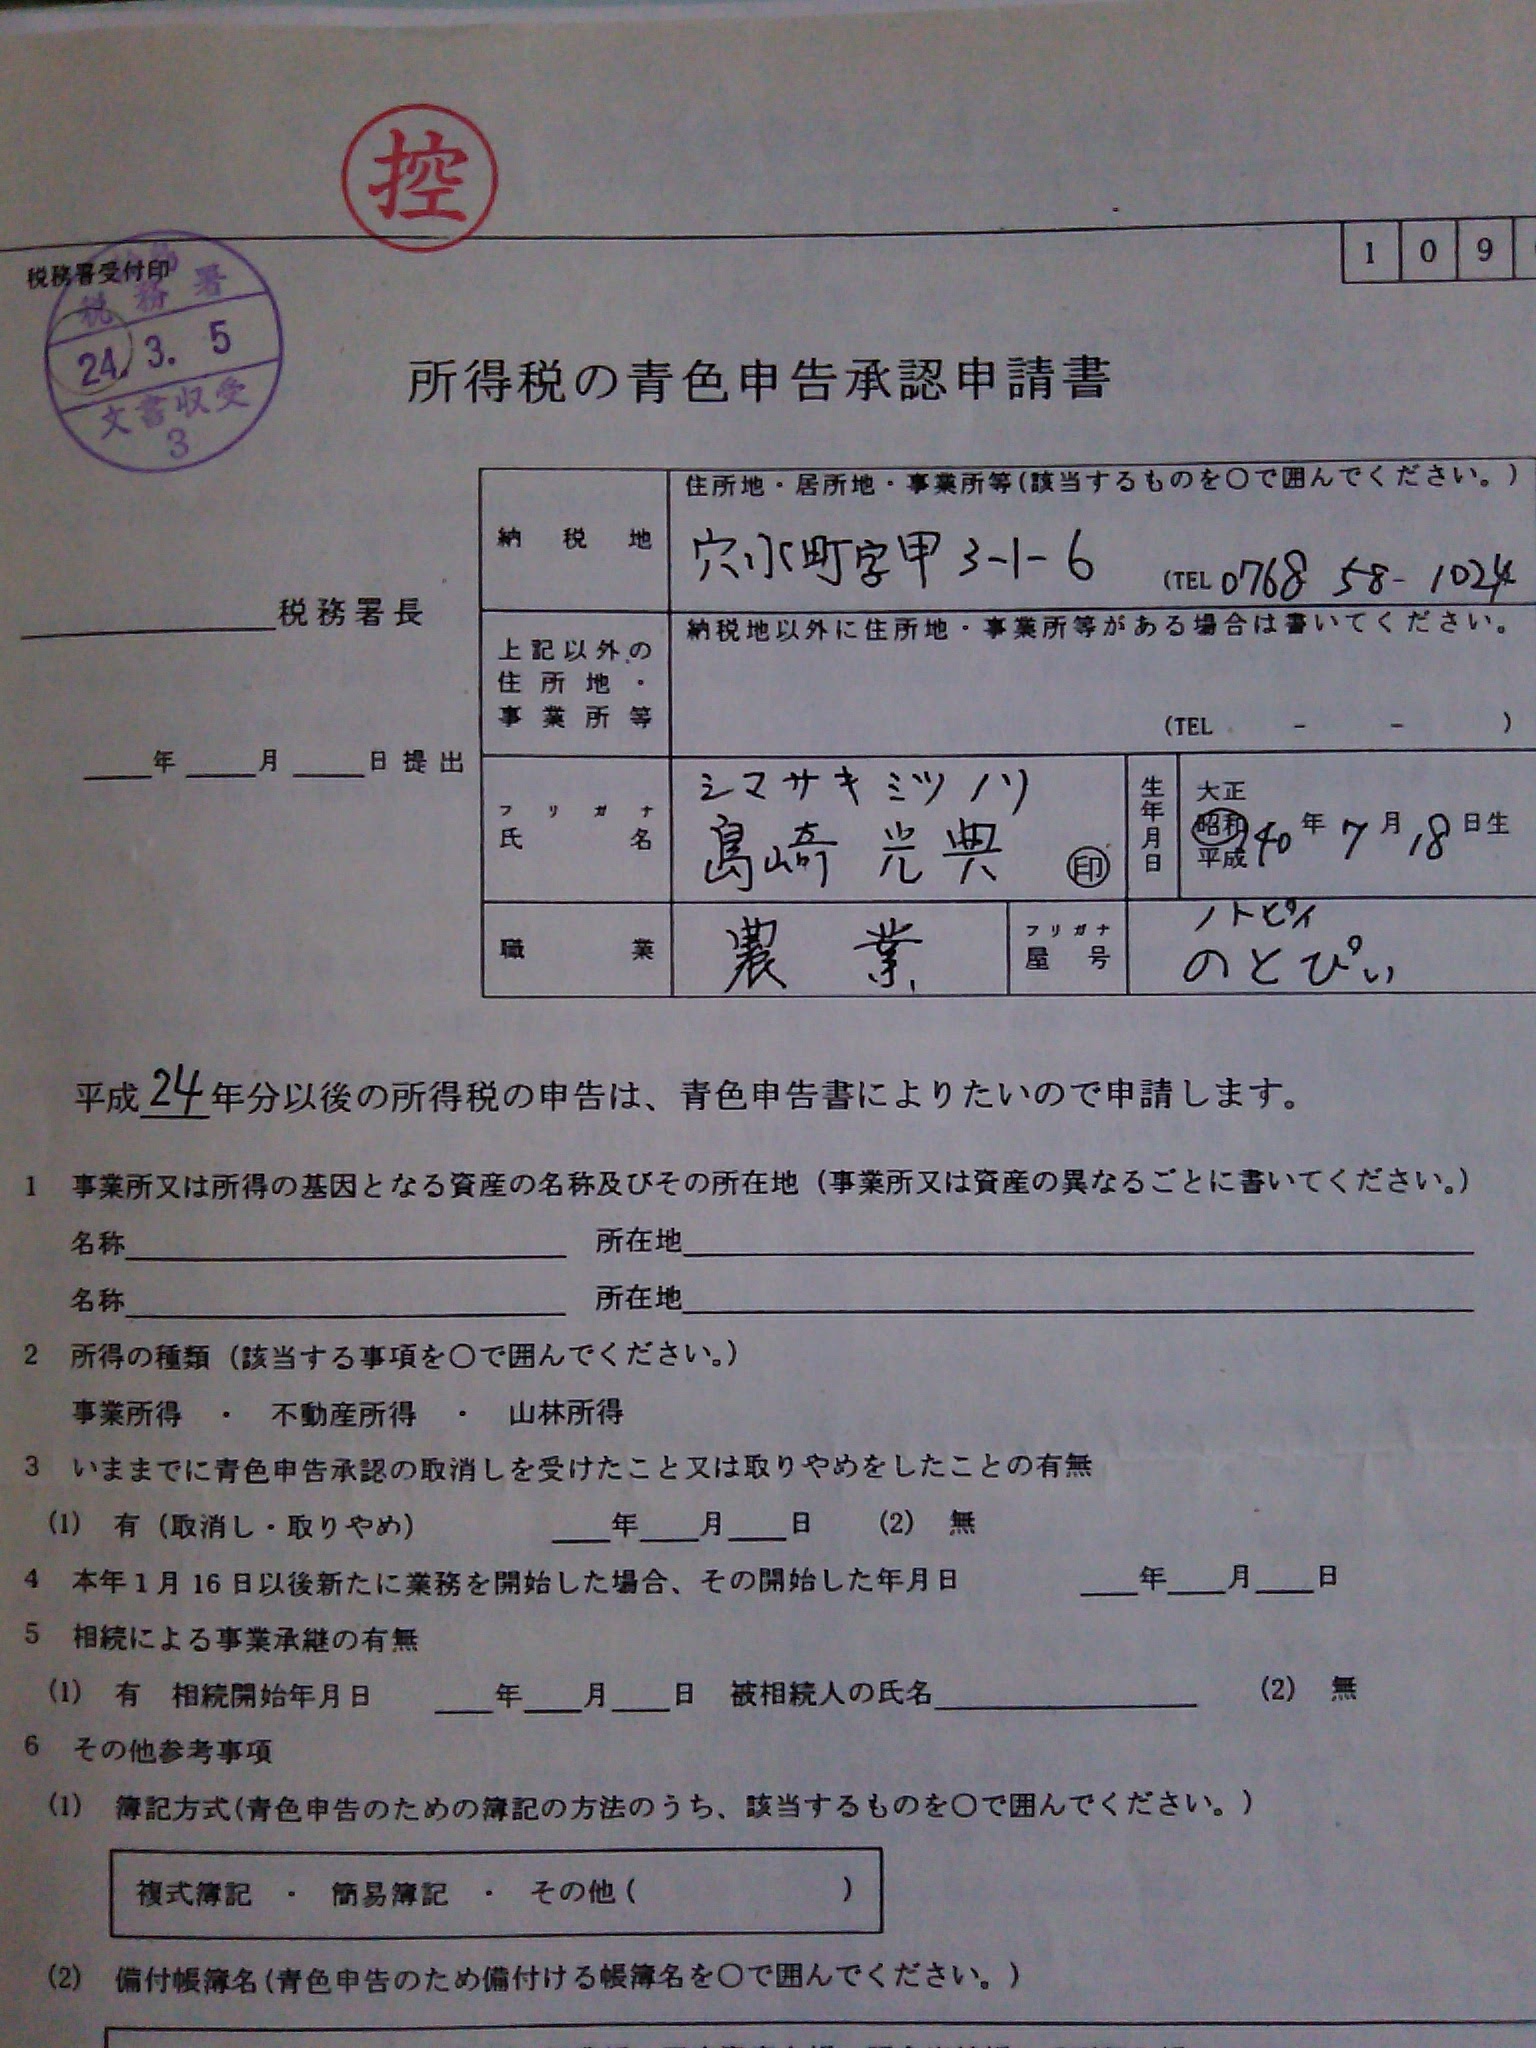 控
1 0 9
税務署受付印
税務署
24. 3. 5
文書収受
3
所得税の青色申告承認申請書
税務署長
年 月 日提出
納税地
住所地・居所地・事業所等(該当するものを〇で囲んでください。)
穴水町字甲3-1-6
(TEL 0768 58-1024
上記以外の住所地・事業所等
納税地以外に住所地・事業所等がある場合は書いてください。
(TEL - - )
フリガナ
シマサキミツノリ
氏名
島崎 光典 ㊞
生年月日
大正
昭和
平成
40年7月18日生
職業
農業
フリガナ
ノトピイ
屋号
のとぴぃ
平成24年分以後の所得税の申告は、青色申告書によりたいので申請します。
1 事業所又は所得の基因となる資産の名称及びその所在地(事業所又は資産の異なるごとに書いてください。)
名称 所在地
名称 所在地
2 所得の種類(該当する事項を〇で囲んでください。)
事業所得 ・ 不動産所得 ・ 山林所得
3 いままでに青色申告承認の取消しを受けたこと又は取りやめをしたことの有無
(1) 有(取消し・取りやめ) 年 月 日 (2) 無
4 本年1月16日以後新たに業務を開始した場合、その開始した年月日 年 月 日
5 相続による事業承継の有無
(1) 有 相続開始年月日 年 月 日 被相続人の氏名 (2) 無
6 その他参考事項
(1) 簿記方式(青色申告のための簿記の方法のうち、該当するものを〇で囲んでください。)
複式簿記 ・ 簡易簿記 ・ その他( )
(2) 備付帳簿名(青色申告のため備付ける帳簿名を〇で囲んでください。)